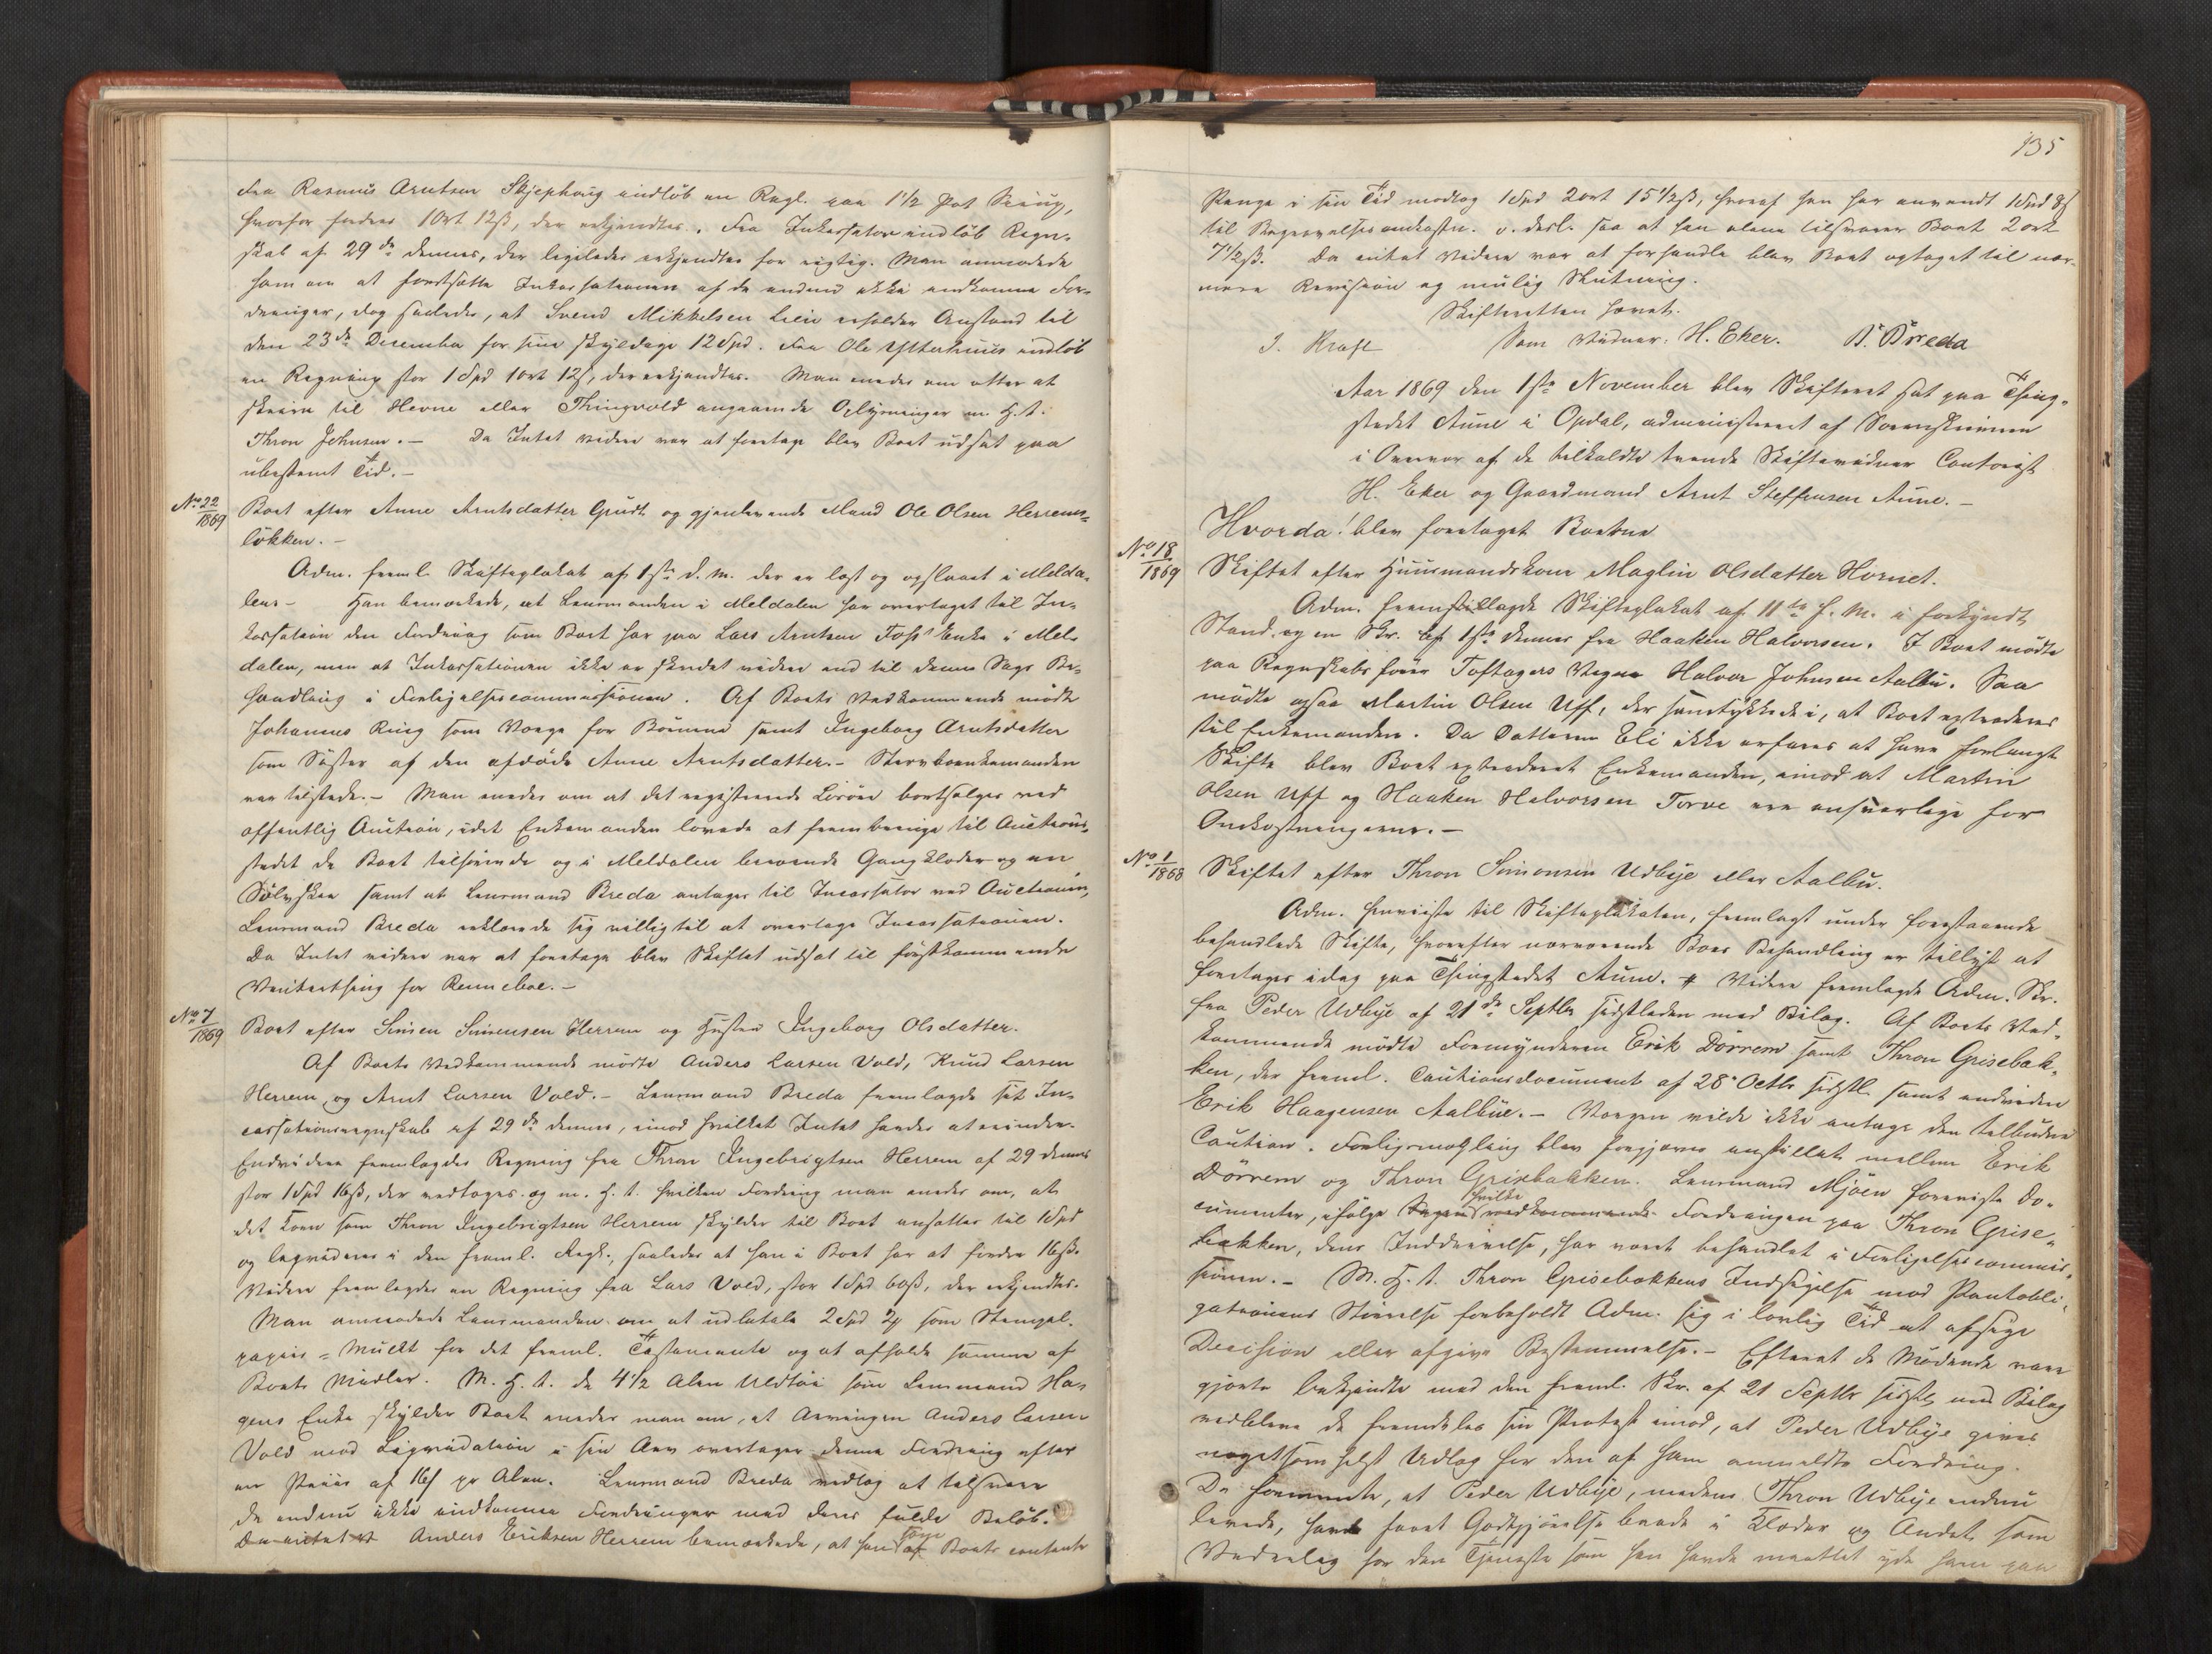 fra Rasmus Arntsen Skjephaug indløb en Regl. paa 1 1/2 Pot Sirup,
hvorfor fordres 1 Ort 12 ß, der erkjendtes. Fra Inkassator indløb Regn-
skab af 29de dennes, der ligeledes erkjendtes for rigtig. Man anmodede
ham om at fortsætte Inkassationen af de endnu ikke indkomne For-
dringer, dog saaledes, at Svend Mikkelsen Lien erholder Anstand til
den 23de Decemba for sine skyldige 12 Spd. Fra Ole Ytterhuus indløb
en Regning stor 1 Spd 1 Ort 12 ß, der erkjendtes. Man enedes om atter at
skrive til Hevne eller Thingvold angaaende Oplysninger m. H. t.
Thron Johnsen. — Da Intet videre var at foretage blev Boet udsat paa
ubestemt Tid. —
No 22/1869 Boet efter Anne Arntsdatter Grudt og gjenlevende Mand Ole Olsen Herrems-
løkken. —
Adm. freml. Skifteplakat af 1ste d. M. der er læst og opslaaet i Melda-
len. — Han bemærkede, at Lensmanden i Meldalen har overtaget til In-
kassation den Fordring som Boet har paa Lars Arntsen Foss' Enke i Mel-
dalen, men at Inkassationen ikke er skredet videre end til denne Sags Be-
handling i Forligelsescommissionen. Af Boets Vedkommende mødte
Johannes Ring som Værge for Børnene samt Ingeborg Arntsdatter
som Søster af den afdøde Anne Arntsdatter. — Stervboenkemanden
var tilstede. — Man enedes om at det registrerede Løsøre bortsælges ved
offentlig Auction, idet Enkemanden lovede at frembringe til Auctions-
stedet de Boet tilhørende og i Meldalen beroende Gangklæder og en
Sølvskee samt at Lensmand Breda antages til Incassator ved Auctionen,
Lensmand Breda erklærede sig villig til at overtage Incassationen.
Da Intet videre var at foretage blev Skiftet udsat til førstkommende
Vinterthing for Renneboe. —
No 7/1869 Boet efter Simen Simensen Herrem og Hustru Ingeborg Olsdatter.
Af Boets Vedkommende mødte Anders Larsen Vold, Knud Larsen
Herrem, og Arnt Larsen Vold. — Lensmand Breda fremlagde sit In-
cassationsregnskab af 29de dennes, imod hvilket Intet havdes at erindre.
Endvidere fremlagdes Regning fra Thron Ingebrigtsen Herrem af 29 dennes
stor 1 Spd 16 ß, der vedtoges og m. H. t. hvilken Fordring man enedes om, at
det Korn som Thron Ingebrigtsen Herrem skylder til Boet ansættes til 1 Spd
og liqvideres i den freml. Regl., saaledes at han i Boet har at fordre 16 ß.
Videre fremlagdes en Regning fra Lars Vold, stor 1 Spd 60 ß, der erkjendtes.
Man anmodede Lensmanden om at udbetale 2 Spd som Stempel-
papiir-Mulkt for det freml. Testamente og at afholde samme af
Boets Midler. M. H. t. de 4 1/2 Alen Uldtøi som Lensmand Ha-
gens Enke skylder Boet enedes man om, at Arvingen Anders Larsen
Vold mod Liqvidation i sin Arv overtager denne Fordring efter
en Priis af 16 ß pr Alen. Lensmand Breda vedtog at tilsvare
de endnu ikke indkomne Fordringer med deres fulde Beløb.
Da intet Anders Eriksen Herrem bemærkede, at han af Boets contante
135
Penge i sin Tid modtog 1 Spd 2 Ort 15 1/2 ß, hvoraf han har anvendt 1 Spd 8 ß
til Begravelsesomkostn. o. desl. saa at han alene tilsvarer Boet 2 Ort
7 1/2 ß. Da intet videre var at forhandle blev Boet optaget til nær-
mere Revision og mulig Slutning.
Skifteretten hævet.
J. Kraft Som Vidner: H. Eker. B. Breda
Aar 1869 den 1ste November blev Skifteret sat paa Thing-
stedet Aune i Opdal, administreret af Sorenskriveren
i Overvær af de tilkaldte tvende Skiftevidner Contorist
H. Eker og Gaardmand Arnt Steffensen Aune. —
Hvorda! blev foretaget Boerne
No 18/1869 Skiftet efter Huusmandskone Maglin Olsdatter Hornet.
Adm. fremlagde Skifteplakat af 11te f. M. i forkyndt
Stand og en Skr. af 1ste dennes fra Haaken Halvorsen. I Boet mødte
paa Regnskabsfører Toftagers Vegne Halvor Johnsen Aalbu. Saa
mødte ogsaa Martin Olsen Uff, der samtykkede i, at Boet extraderes
til Enkemanden. Da Datteren Eli ikke erfares at have forlangt
Skifte blev Boet extraderet Enkemanden, imod at Martin
Olsen Uff og Haaken Halvorsen Torve ere ansvarlige for
Omkostningerne. —
No 1/1868 Skiftet efter Thron Simonsen Udbye eller Aalbu.
Adm. henviste til Skifteplakaten, fremlagt under foregaaende
behandlede Skifte, hvorefter nærværende Boes Behandling er tillyst at
foretages idag paa Thingstedet Aune. Videre fremlagde Adm. Skr.
fra Peder Udbye af 21de Septbr sidstleden med Bilag. Af Boets Ved-
kommende mødte Formynderen Erik Dørrem samt Thron Grisebak-
ken, der freml. Cautionsdocument af 28 Octbr sidstl. samt endvidere
Erik Haagensen Aalbue. — Værgen vilde ikke antage den tilbudne
Caution. Forligsmægling blev forgjæves anstillet mellem Erik
Dørrem og Thron Grisebakken. Lensmand Mjøen foreviste Do-
cumenter, ifølge hvilke Fordringen paa Thron Grise-
bakken, dens Inddrivelse, har været behandlet i Forligelsescommis-
sionen. — M. H. t. Thron Grisebakkens Indsigelse mod Pantobli-
gationens Størrelse forbeholdt Adm. sig i lovlig Tid at afsige
Decision eller afgive Bestemmelse. — Efterat de Mødende vare
gjorte bekjendte med den freml. Skr. af 21 Septbr sidstl. med Bilag
vedbleve de fremdeles sin Protest imod, at Peder Udbye gives
nogetsomhelst Udlæg for den af ham anmeldte Fordring.
De formente, at Peder Udbye, medens Thron Udbye endnu
levede, havde faaet Godtgjørelse baade i Klæder og Andet som
Vederlag for den Tjeneste som han havde maattet yde ham paa